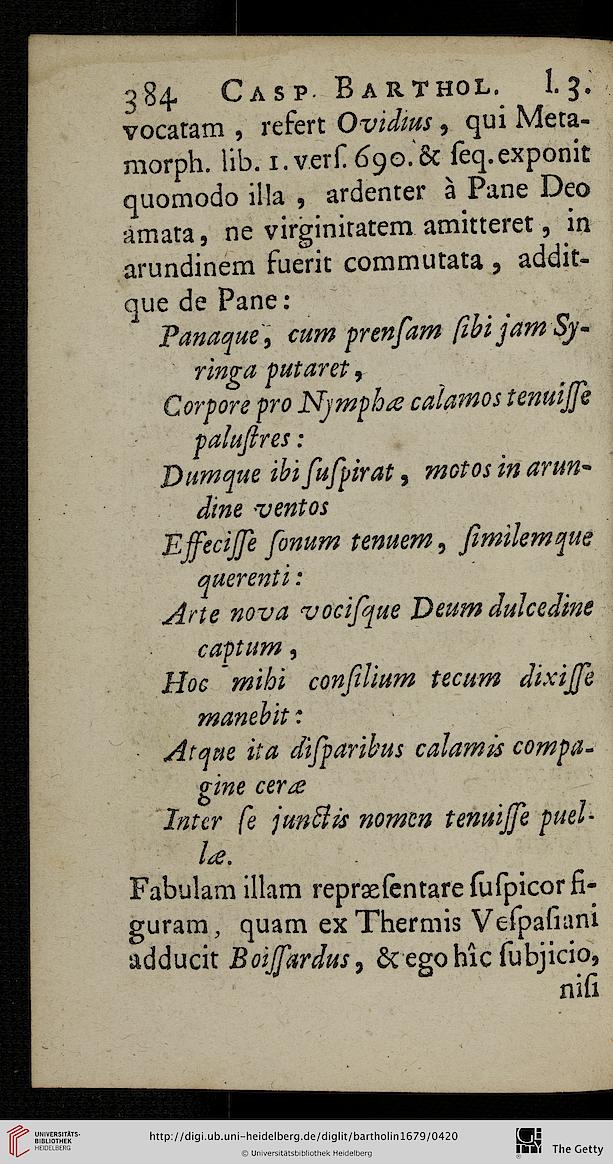 384 CASP. BARTHOL. l. 3.
vocatam , refert Ovidius , qui Meta-
morph. lib. 1. verſ. 690. & ſeq. exponit
quomodo illa , ardenter à Pane Deo
amata, ne virginitatem amitteret , in
arundinem fuerit commutata , addit-
que de Pane :
Panaque , cum prenſam ſibi jam Sy-
ringa putaret ,
Corpore pro Nymphæ calamos tenuiſſe
paluſtres :
Dumque ibi ſuſpirat , motos in arun-
dine ventos
Effeciſſe ſonum tenuem , ſimilemque
querenti :
Arte nova vociſque Deum dulcedine
captum ,
Hoc mihi conſilium tecum dixiſſe
manebit :
Atque ita diſparibus calamis compa-
gine ceræ
Inter ſe junctis nomen tenuiſſe puel-
læ.
Fabulam illam repræſentare ſuſpicor fi-
guram , quam ex Thermis Veſpaſiani
adducit Boiſſardus , & ego hîc ſubjicio,
niſi
UNIVERSITÄTS-
BIBLIOTHEK
HEIDELBERG
http://digi.ub.uni-heidelberg.de/diglit/bartholin1679/0420
© Universitätsbibliothek Heidelberg
The Getty